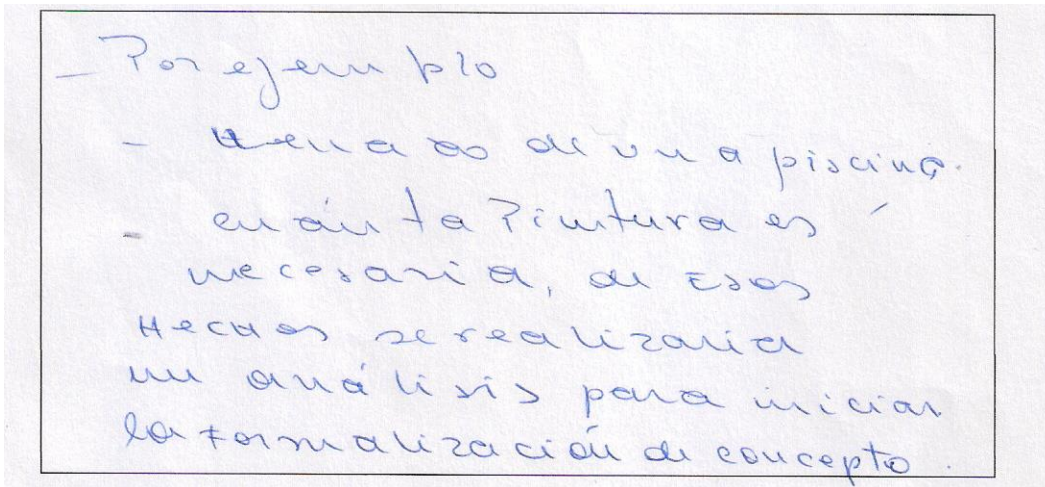 - Por ejemplo
- llenado de una piscina.
- cuánta Pintura es
necesaria, de Esos
Hechos se realizaria
un análisis para iniciar
la formalización de concepto.